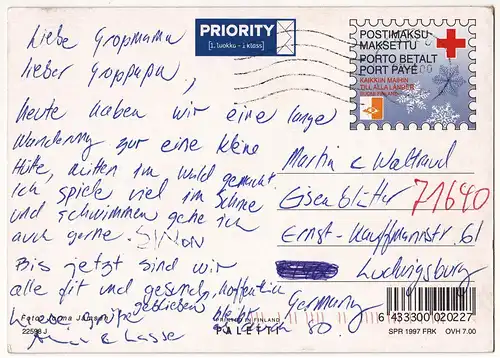 PRIORITY
[1. luokka - 1 klass]
POSTIMAKSU
MAKSETTU
PORTO BETALT
PORT PAYÉ
KAIKKIIN MAIHIN
TILL ALLA LÄNDER
SUOMI FINLAND
Liebe Gropmama
Lieber Groppapa,
Heute haben wir eine lange
Wanderung zur eine kleine
Hütte, mitten im Wald gemacht
Ich spiele viel im Schnee
und schwimmen gehe ich
auch gerne. SIMON
Bis jetzt sind wir
alle fit und gesund, hoffentlich
geblieben bleibt
so.
Liebe Grüße
& Lasse
Martin & Waltraud
Eisenblätter
71640
Ernst-Kauffmannstr. 61
Ludwigsburg
Germany
Foto: Jorma Jämsen
22598 J
PRINTED IN FINLAND
PALETTI
6 433300 020227
SPR 1997 FRK OVH 7.00